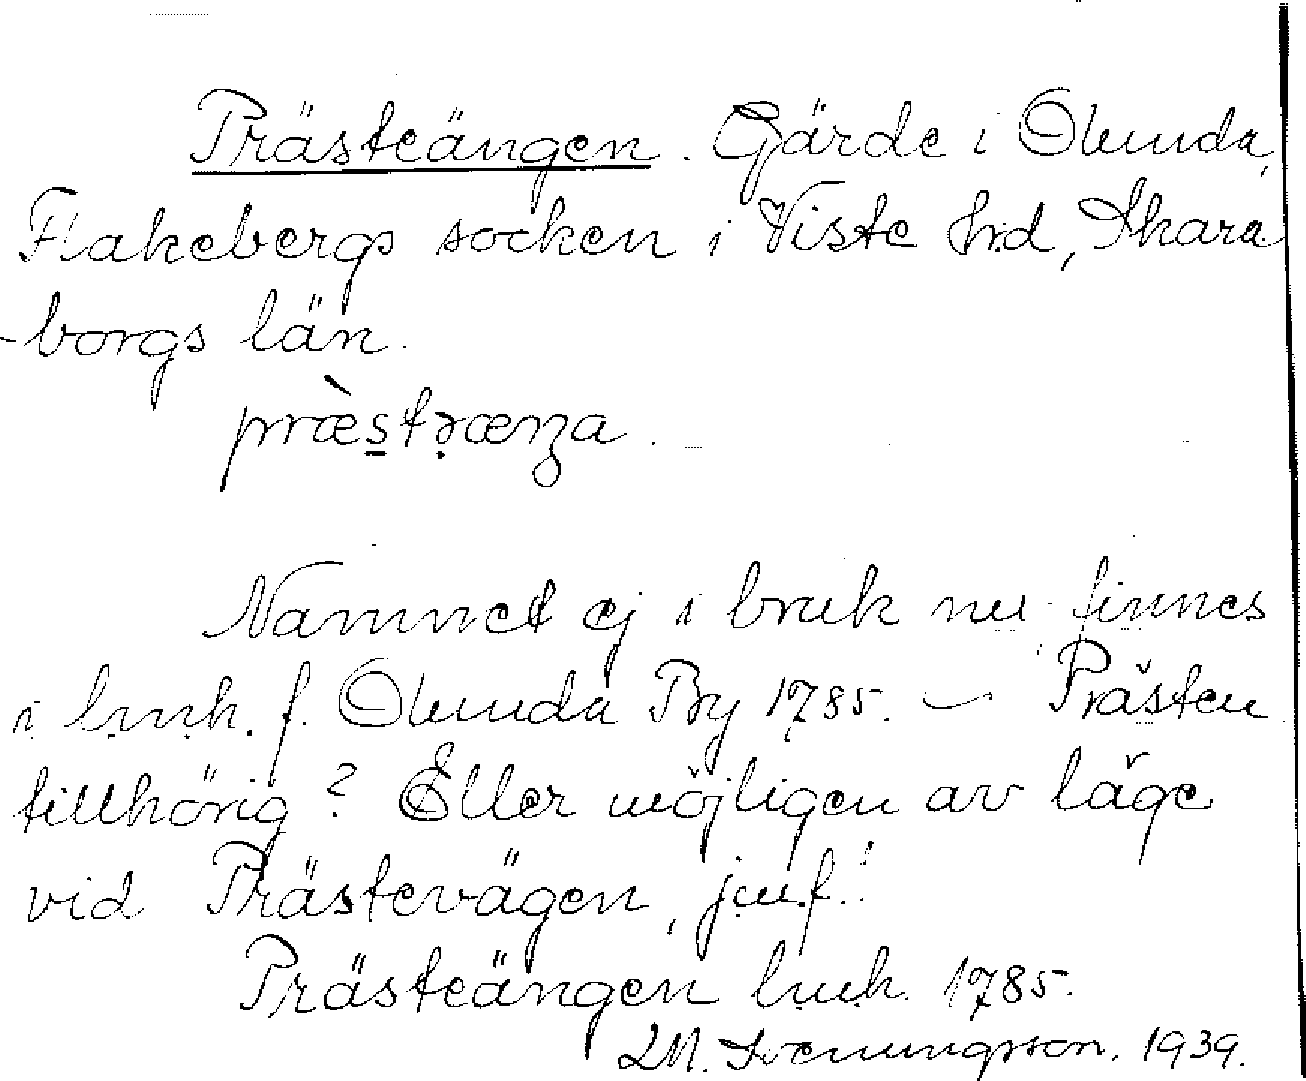 Prästeängen. Gärde i Olunda,
Flakebergs socken i Viste hrd, Skara
-borgs län.
præ̀stræŋa.
Namnet ej i bruk nu; finnes
i lmk. f. Olunda By 1785. – Prästen
tillhörig? Eller möjligen av läge
vid Prästevägen, jmf.!
Prästeängen lmk. 1785.
LM. Svenungsson. 1939.